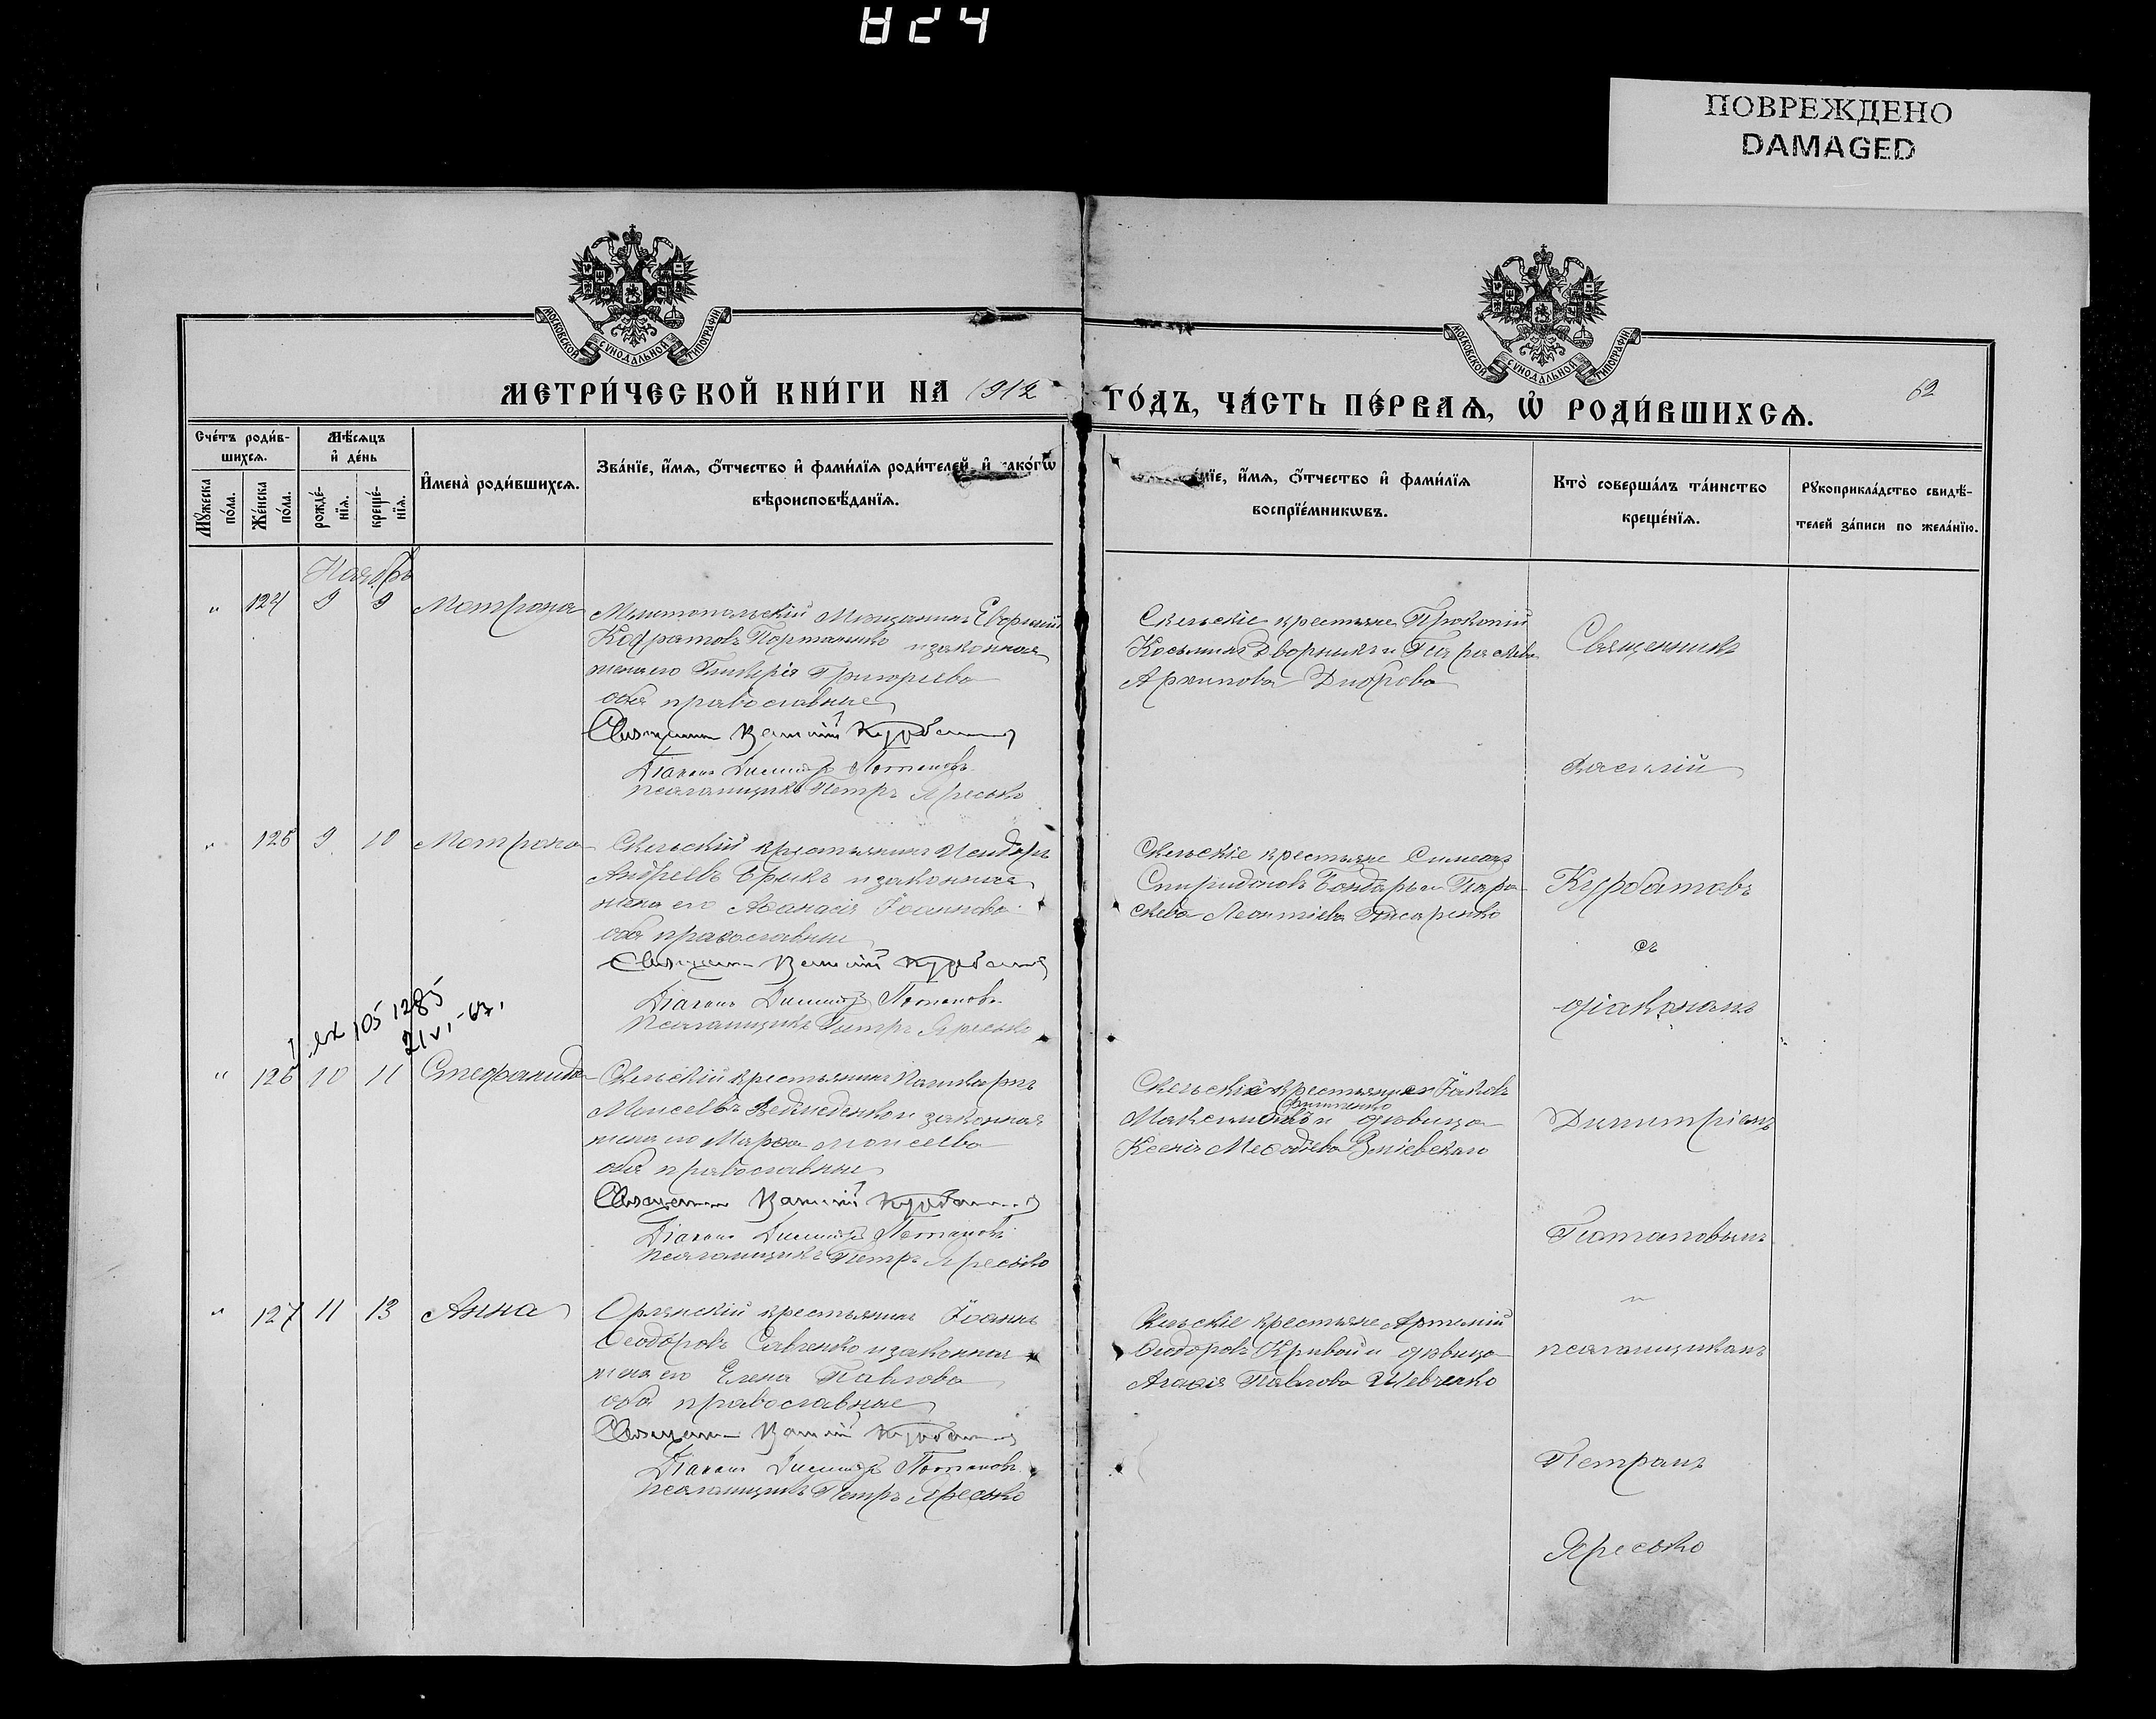 824
ПОВРЕЖДЕНО
DAMAGED
МОСКОВСКОЙ СѴНОДАЛЬНОЙ ТИПОГРАФІИ
МОСКОВСКОЙ СѴНОДАЛЬНОЙ ТИПОГРАФІИ
МЕТРИ́ЧЕСКОЙ КНИ́ГИ НА 1912 ГО́ДЪ, ЧА́СТЬ ПЕ́РВАѦ, Ѡ҆ РОДИ́ВШИХСѦ.
62
Сче́тъ роди́в-
шихсѧ.
Мꙋ́жеска по́ла.
Же́нска по́ла.
Мѣ́сѧцъ
и҆ де́нь
рожде́-
нїѧ.
креще́-
нїѧ.
И҆мена̀ роди́вшихсѧ.
Зва́нїе, и҆́мѧ, ѻ҆́тчество и҆ фами́лїѧ роди́телей, и҆ ако́гѡ
вѣроисповѣ́данїѧ.
нїе, и҆́мѧ, ѻ҆́тчество и҆ фами́лїѧ
воспрїе́мникѡвъ.
Кто̀ соверша́лъ та́инство
креще́нїѧ.
Рꙋкоприкла́дство свидѣ́-
телей за́писи по жела́нїю.
Ноябрь
" 124 9 9 Мотрона
Мелитопольскій мѣщанинъ Георгій
Кодратовъ Портянко и законная
жена его Гликерія Григорьева
оба православные
Священникъ Василій Курбатовъ
Діаконъ Димитрій Потаповъ
Псаломщикъ Петръ Яресько
Скельскіе крестьяне Прокопій
Косьминъ Дворникъ и Параскева
Архипова
Священникъ
Василій
" 125 9 10 Мотрона
Скельскій крестьянинъ Исидоръ
Андреевъ и законная
жена его Аѳанасія Іоаннова
оба православные
Священникъ Василій Курбатовъ
Діаконъ Димитрій Потаповъ
Псаломщикъ Петръ Яресько
Скельскіе крестьяне Симеонъ
Спиридоновъ Бондарь и Пара-
скева Леонтіева Писаренко
Курбатовъ
съ
діакономъ
105 1285
21 VI - 67.
" 126 10 11 Стефанида
Скельскій крестьянинъ Поликарпъ
Моисеевъ Ведмеденко и законная
жена его Марѳа Моисеева
оба православные
Священникъ Василій Курбатовъ
Діаконъ Димитрій Потаповъ
Псаломщикъ Петръ Яресько
Скельскій крестьянинъ Іаковъ
Максимовъ и дѣвица
Ксенія Меѳодіева Зміевская
Димитріемъ
Потаповымъ
и
" 127 11 13 Анна
Орлянскій крестьянинъ Іоаннъ
Ѳеодоровъ Савченко и законная
жена его Елена Павлова
оба православные
Священникъ Василій Курбатовъ
Діаконъ Димитрій Потаповъ
Псаломщикъ Петръ Яресько
Скельскіе крестьяне Артемій
Ѳеодоровъ Кривой и дѣвица
Агаѳія Павлова Шевченко
псаломщикомъ
Петромъ
Яресько